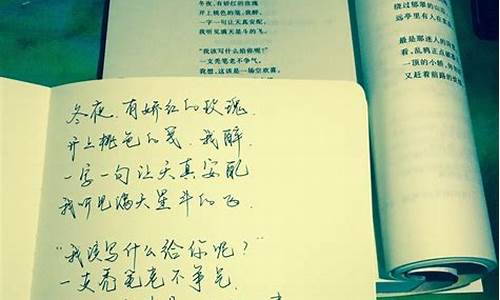 冬夜，有娇红的玫瑰
开上桃色的笺，我醉，
一字一句让天真安配
我听见满天星斗的飞。
“我该写什么给你呢？”
一支秃笔老不争气，
我想，这该是一场空欢喜。
绕过郁翠的山
远亭里有人在
最是那迷人的
看，乱鸦正点
一顶的小轿，
又赶着前路的
冬夜，有娇红的玫瑰，
开上桃色的笺，我醉
一字一句让天真安配
我听见满天星斗的飞
“我该写什么给你呢？”
一支秃笔老不争气